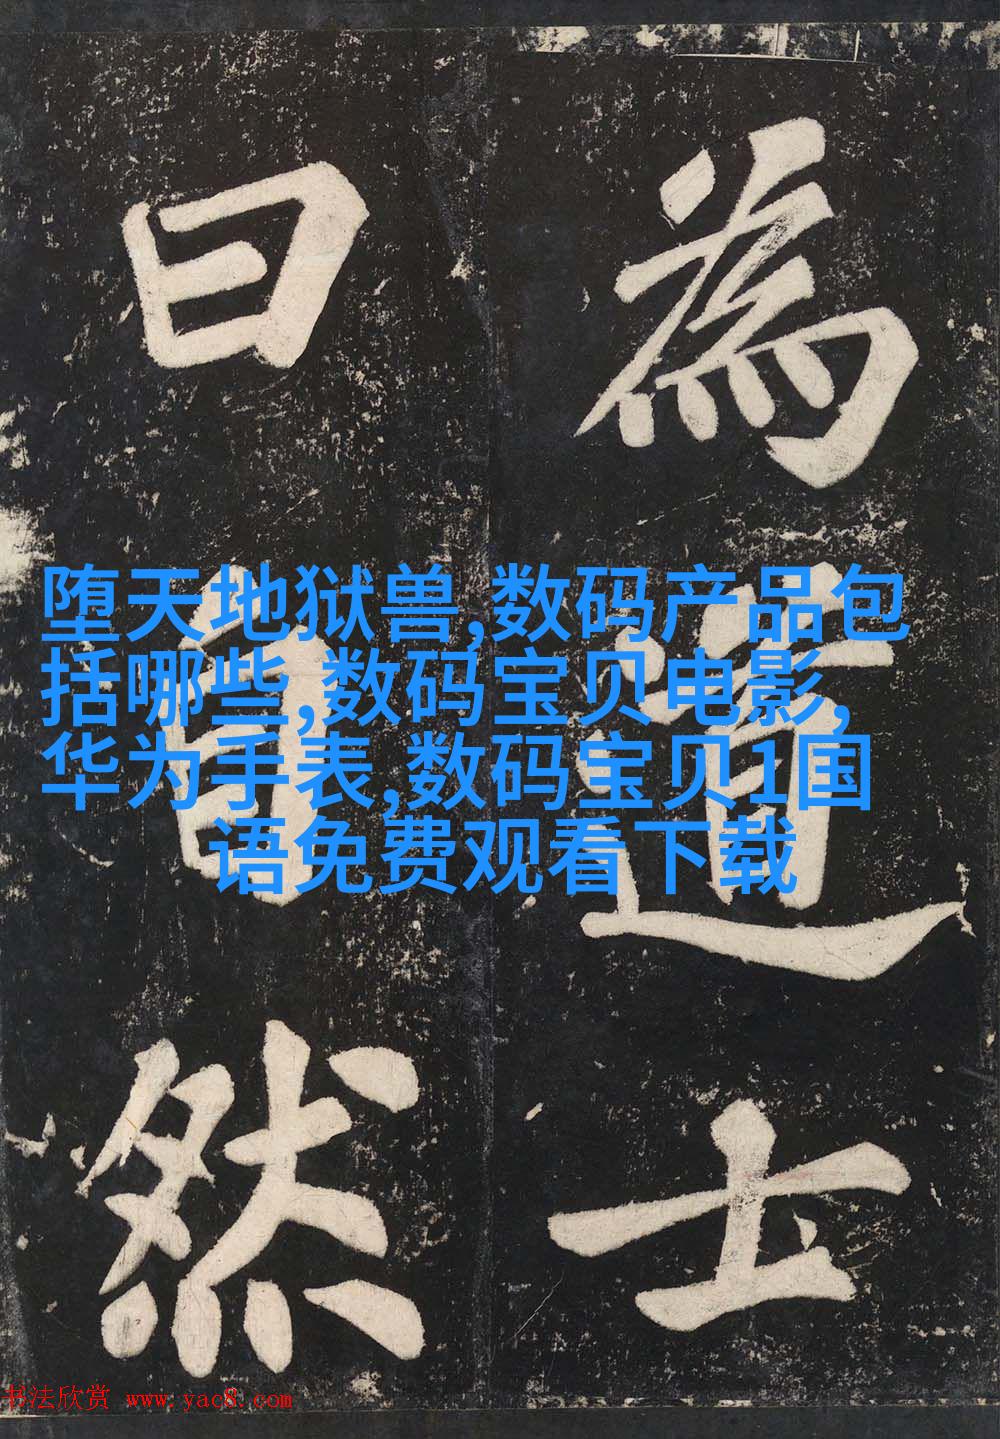 為道士
曰自然
堕天地狱兽,数码产品包
括哪些,数码宝贝电影,
华为手表,数码宝贝1国
语免费观看下载
书法欣赏 www.yac8.com